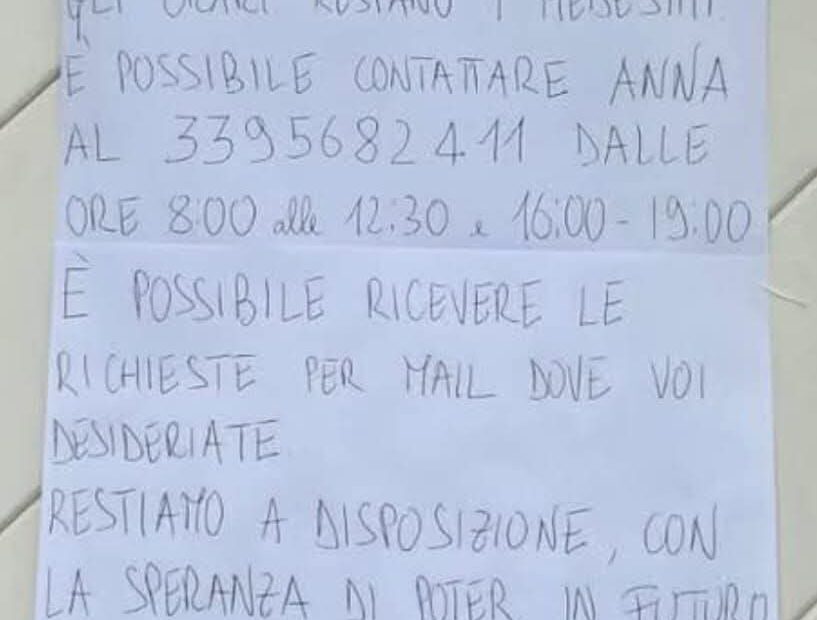 GLI ORARI RESTANO I MEDESIMI
È POSSIBILE CONTATTARE ANNA
AL 3395682411 DALLE
ORE 8:00 alle 12:30 e 16:00 - 19:00
È POSSIBILE RICEVERE LE
RICHIESTE PER MAIL DOVE VOI
DESIDERIATE
RESTIAMO A DISPOSIZIONE, CON
LA SPERANZA DI POTER IN FUTURO